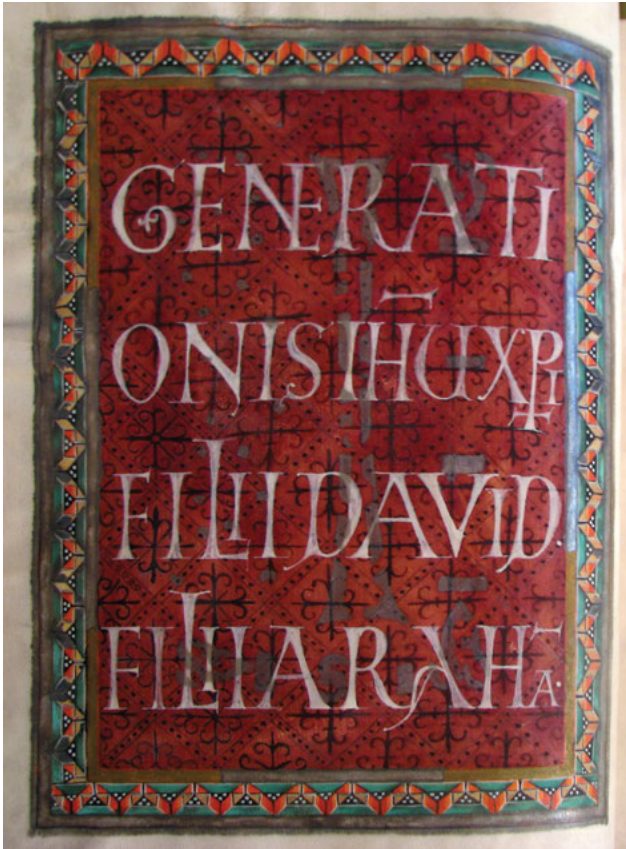 GENERATI
ONIS IH̅U XPI
FILII DAVID.
FILII ARAHĀ.